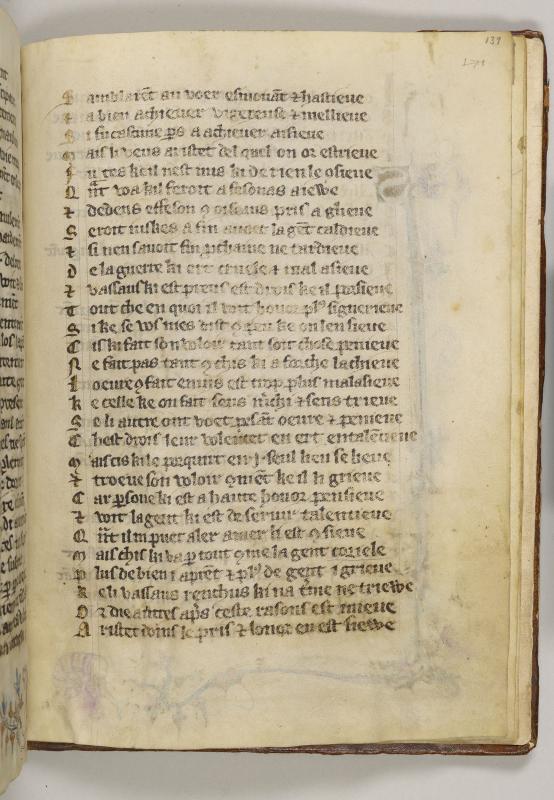 139
S amblarēt au voer esmouāt ⁊ hastieue
⁊ a bien achieuer vigereuse ⁊ mellieue
S i fu cascune ps a achieuer aisieue
M ais li veus aristet del quel on or estrieue
F u tes ke il nest nus ki de rien le osieue
Q nt voa kil feroit a
⁊ dedens effeson 9 oiseaus pris a glieue
S eroit iuskes a fin auoec la gēt caldieue
⁊ si nen sauoit fin prchaine ne tardieue
D e la guerre ki ert cruele ⁊ mal asieue
⁊ vassaus ki est preus est drois ke il porsieue
T out che en quoi il voit honor plꝰ signerieue
S i ke se vos mes dist 9 peu ke on len sieue
C is ki fait son voloir tant soit chose penieue
N e fait pas tant 9 chis ki a forche lachieue
L oeure 9 fait enuis est trop plus malasieue
K e celle ke on fait sons nrchi ⁊ sens trieue
S e li autre ont voet pesāt oeure ⁊ penieue
C hest drois leur volentet en ert entalēueue
M ais cis ki le porquirt en .i. seul lieu se lieue
⁊ troeue son voloir 9ment ke il li grieue
C ar psone ki est a haute honor pensieue
⁊ voit la gent ki est de seruir talentieue
Q nt il m puet aler amer li est 9sieue
M ais chis ki va p tout 9me la gent coriele
P lus de bien i aprēt ⁊ plꝰ de gent igrieue
K e li vassaus renchus ki na tme ne triewe
D ⁊ die autres aps ceste rasons est mieue
A ristet dons le pris ⁊ lonor en est siewe